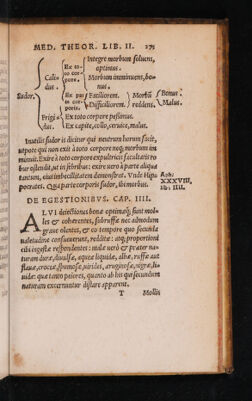 MED. THEOR. LIB. II. 275
Integre morbum soluens,
optimus.
Calidus.
Ex toto corpore.
Morbum imminuens, bonus.
Sudor.
Ex parte corporis.
Faciliorem.
Difficiliorem.
Morbũ reddens.
Bonus.
Malus.
Frigidus.
Ex toto corpore pessimus.
Ex capite, collo, ceruice, malus.
Inutilis sudor is dicitur qui neutrum horum facit,
utpote qui non exit à toto corpore neq; morbum imminuit.
Exire à toto corpore expultricis facultatis robur
ostendit, ut in febribus: exire uerò à parte aliqua
tantum, eius imbecillitatem demonstrat. Vnde Hippocrates.
Qua parte corporis sudor, ibi morbus.
Aph:
XXXVIII,
lib: IIII.
DE EGESTIONIBVS. CAP. IIII.
ALVI deiectiones bonæ optimæq; sunt molles
& cohærentes, subruffæ nec admodum
graue olentes, & eo tempore quo secunda
ualetudine consueuerunt, redditæ: atq; proportioni
cibi ingestæ respondentes: malæ uerò & præter naturam
duræ,
aqueæ liquidæ, albæ, ruffæ aut
flauæ, croceæ, spumosæ, uirides, æruginosæ, nigræ, liuidæ:
quæ tanto peiores, quanto ab his quæ secundum
naturam excernuntur distare apparent.
T Mollis